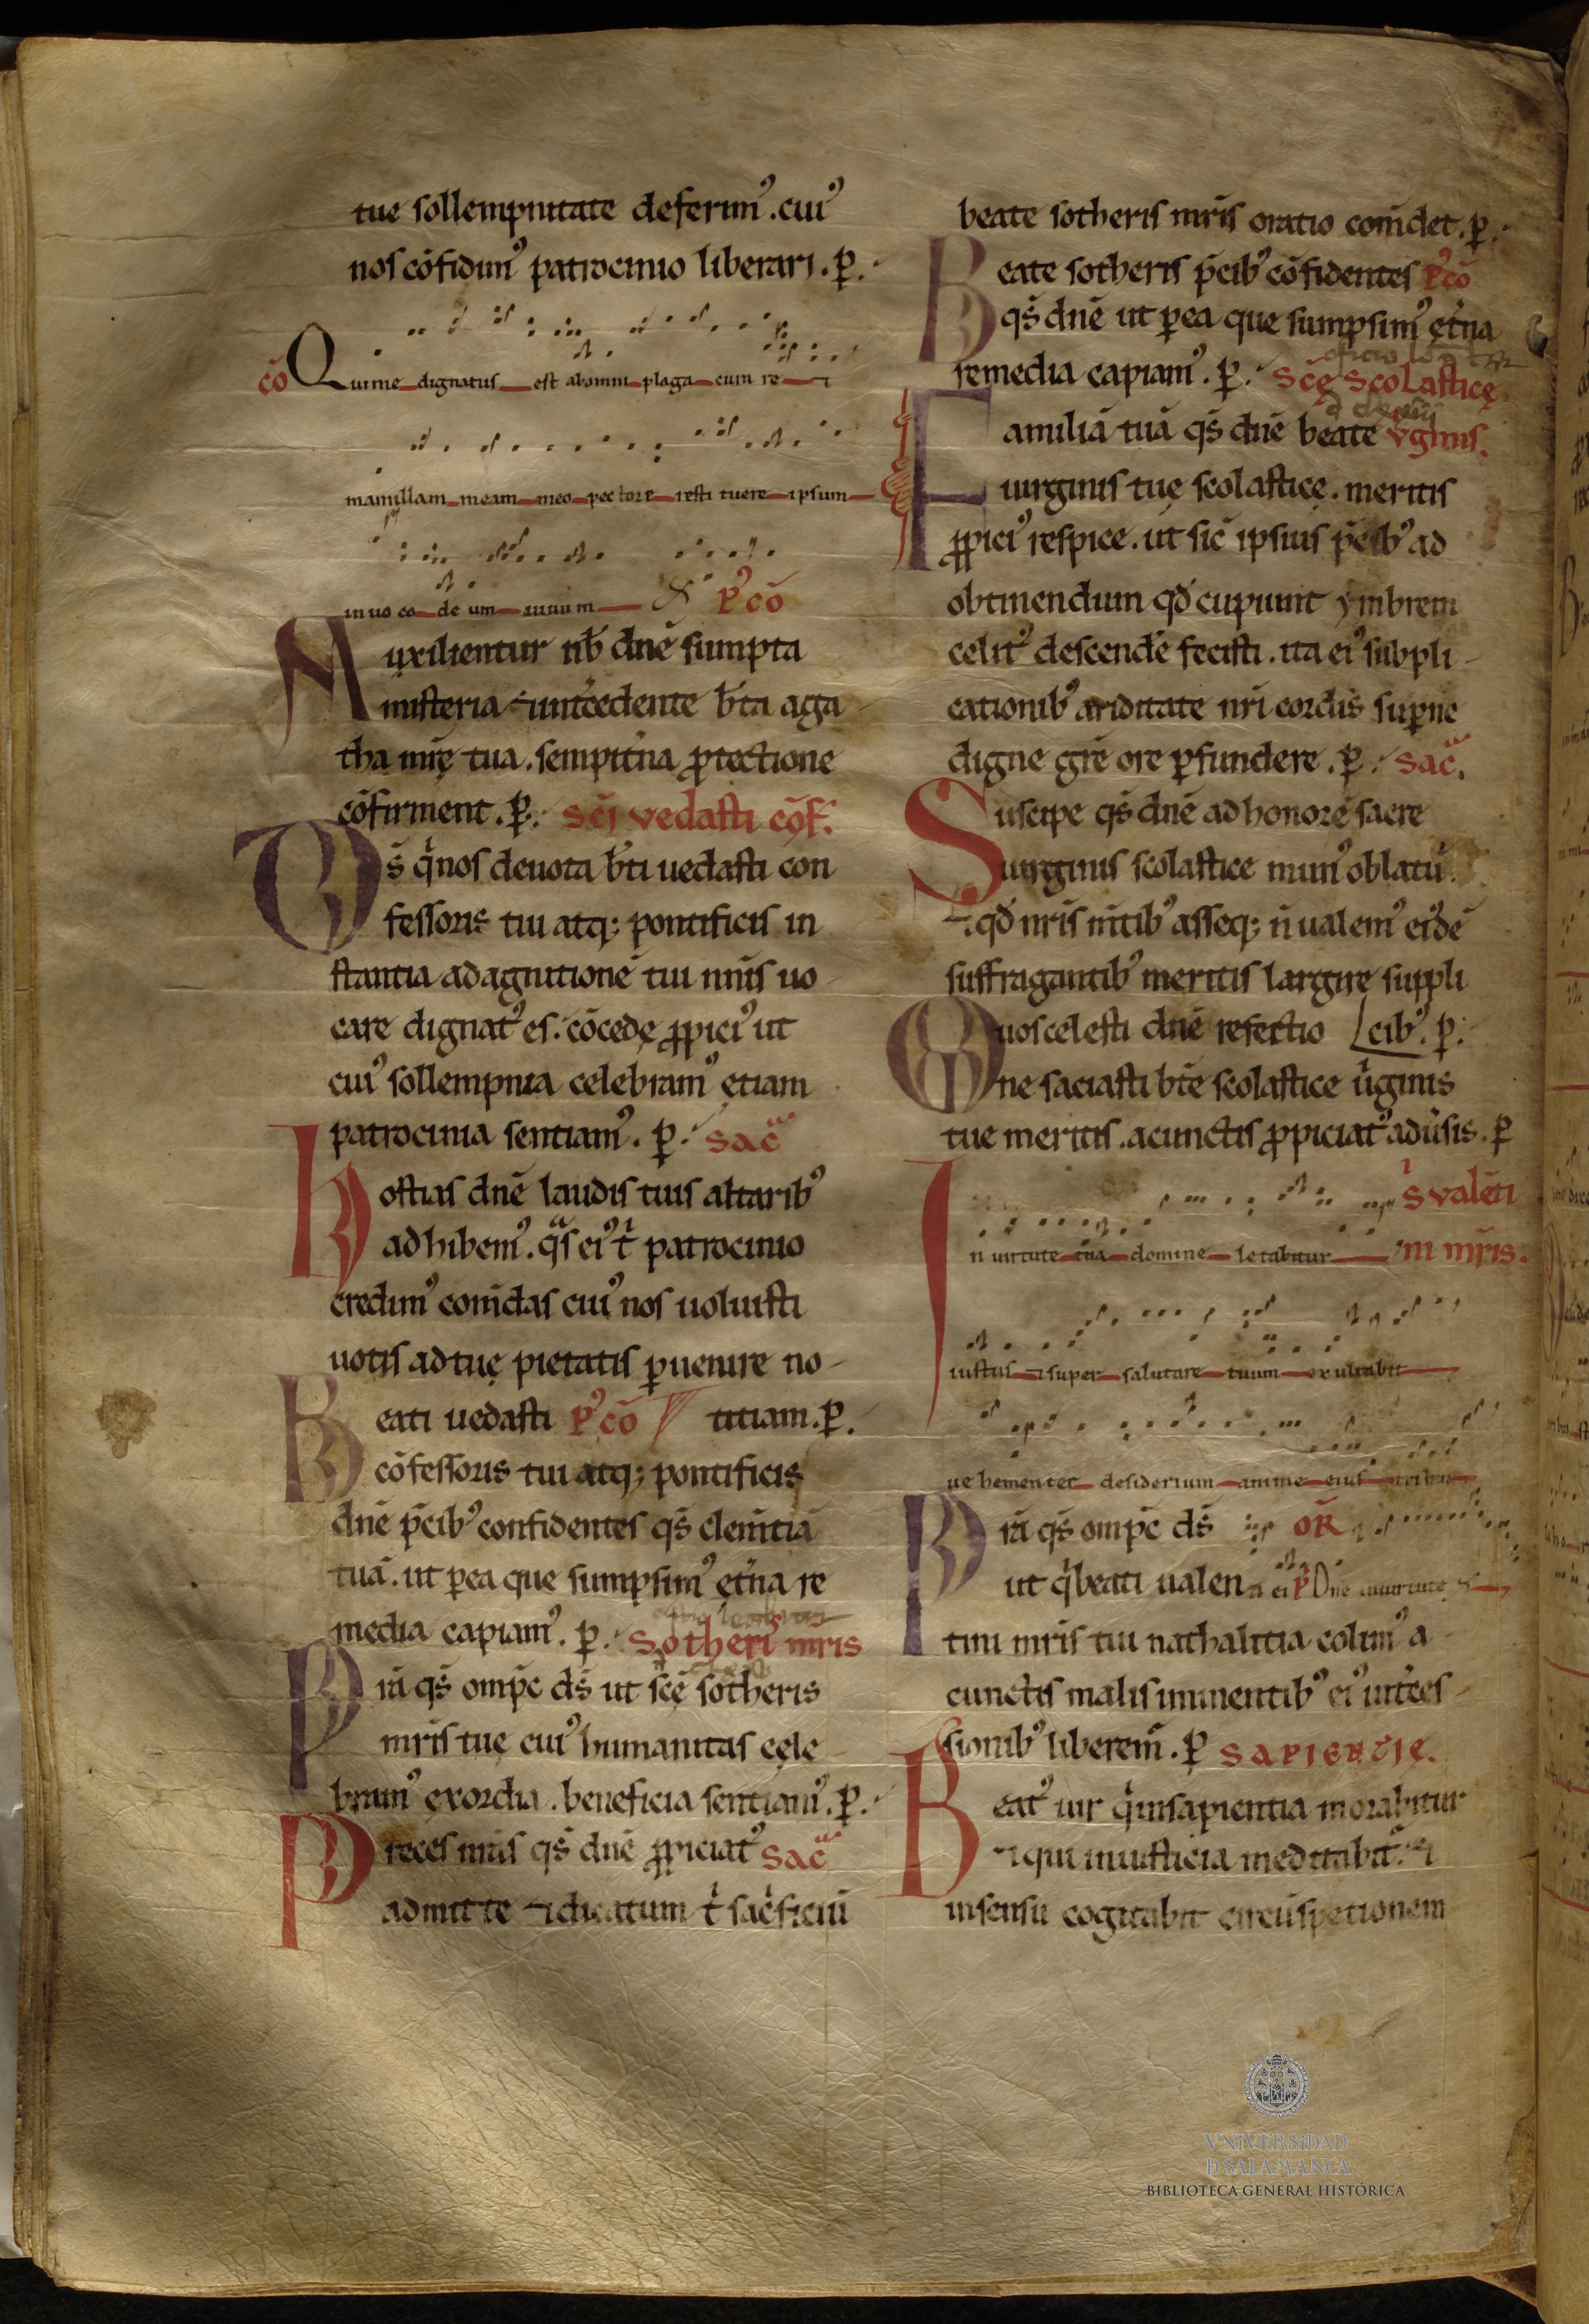 tue sollempnitate deferim᾽. cui᾽
nos cōfidim᾽ patrocinio liberari. ꝑ.
cō Qui me dignatus est abomni plaga cum re ⁊
mamillam meam meo pectore resti tuere ipsum
in uo co de um uiuum P᾽cō
Auxilientur nƀ dnē sumpta
misteria ⁊ int̄cedente ƀta aga
tha mr̄ę tua. sempit̄na ꝓtectione
cōfirment. ꝑ. Scī vedasti cōf.
Qs̄ q̄ nos deuota ƀti uedasti con
fessoris tui atq; pontificis in
stantia ad agnitionē tui nn̄is uo
care dignat᾽ es. cōcede ꝓpici᾽ ut
cui᾽ sollempnia celebram᾽ etiam
patrocinia sentiam᾽. ꝑ. Sac̄
Hostias dnē laudis tuis altarib᾽
adhibem᾽. q̄s ei᾽ t̄ patrocinio
credim᾽ com̄das cui᾽ nos uoluisti
uotis ad tuę pietatis ꝑuenire no-
Beati uedasti P᾽cō titiam. ꝑ.
cōfessoris tui atq; pontificis
dnē p̄cib᾽ confidentes qs̄ clem̄tiā
tuā. ut ꝑ ea que sumpsim᾽ et̄na re
media capiam᾽. ꝑ. Sotheri᾽ mr̄is
Prā qs̄ omp̄c ds̄ ut scę̄ sotheris
mr̄is tuę cui᾽ humanitas cele
bram᾽ exordia. beneficia sentiam᾽. ꝑ.
Preces nr̄as qs̄ dnē ꝓpiciat᾽ Sac̄
admitte ⁊ dicatum t̄ sac̄ficiū
beate sotheris mr̄is oratio com̄det. ꝑ.
Beate sotheris p̄cib᾽ cōfidentes P᾽cō
qs̄ dnē ut ꝑ ea que sumpsim᾽ et̄na
remedia capiam᾽. ꝑ. Scę̄ Scolasticę
Familiā tuā qs̄ dnē beate vginis.
uirginis tuę scolasticę. meritis
ꝓpici᾽ respice. ut sic̄ ipsius p̄cib᾽ ad
obtinendum qd̄ cupiunt ymbrem
celit᾽ descendē fecisti. ita ei᾽ subpli-
cationib᾽ ariditate nr̄i cordis suꝑne
digne gr̄e ore ꝑfundere. ꝑ. Sac̄.
Suscipe qs̄ dnē ad honorē sacre
uirginis scolastice mun᾽ oblatū.
⁊ qd̄ nr̄is m̄tib᾽ asseq; n̄ ualem᾽ eidē
suffragantib᾽ meritis largire suppli
Quos celesti dnē refectio cib᾽. ꝑ.
ne saciasti ƀte scolastice ūginis
tue meritis. a cunctis ꝓpiciat᾽ adūsis. ꝑ
S valēti
In uirtute tua domine letabitur ni mr̄is.
iustus ⁊ super salutare tuum exultabit
ue hementer desiderium anime eius
Prā qs̄ omp̄c ds̄ OR
ut q̄ beati ualen ei P̄ Dne inuirtute
tini mr̄is tui nathalitia colim᾽ a
cunctis malis iminentib᾽ ei᾽ int̄ces-
sionib᾽ liberem᾽. ꝑ SAPIENCIĘ.
Beat᾽ uir q̄ in sapientia morabitur
⁊ qui in iusticia meditabit̄. ⁊
in sensu cogitabit circūspetionem
VNIVERSIDAD
D SALAMANCA
BIBLIOTECA GENERAL HISTÓRICA